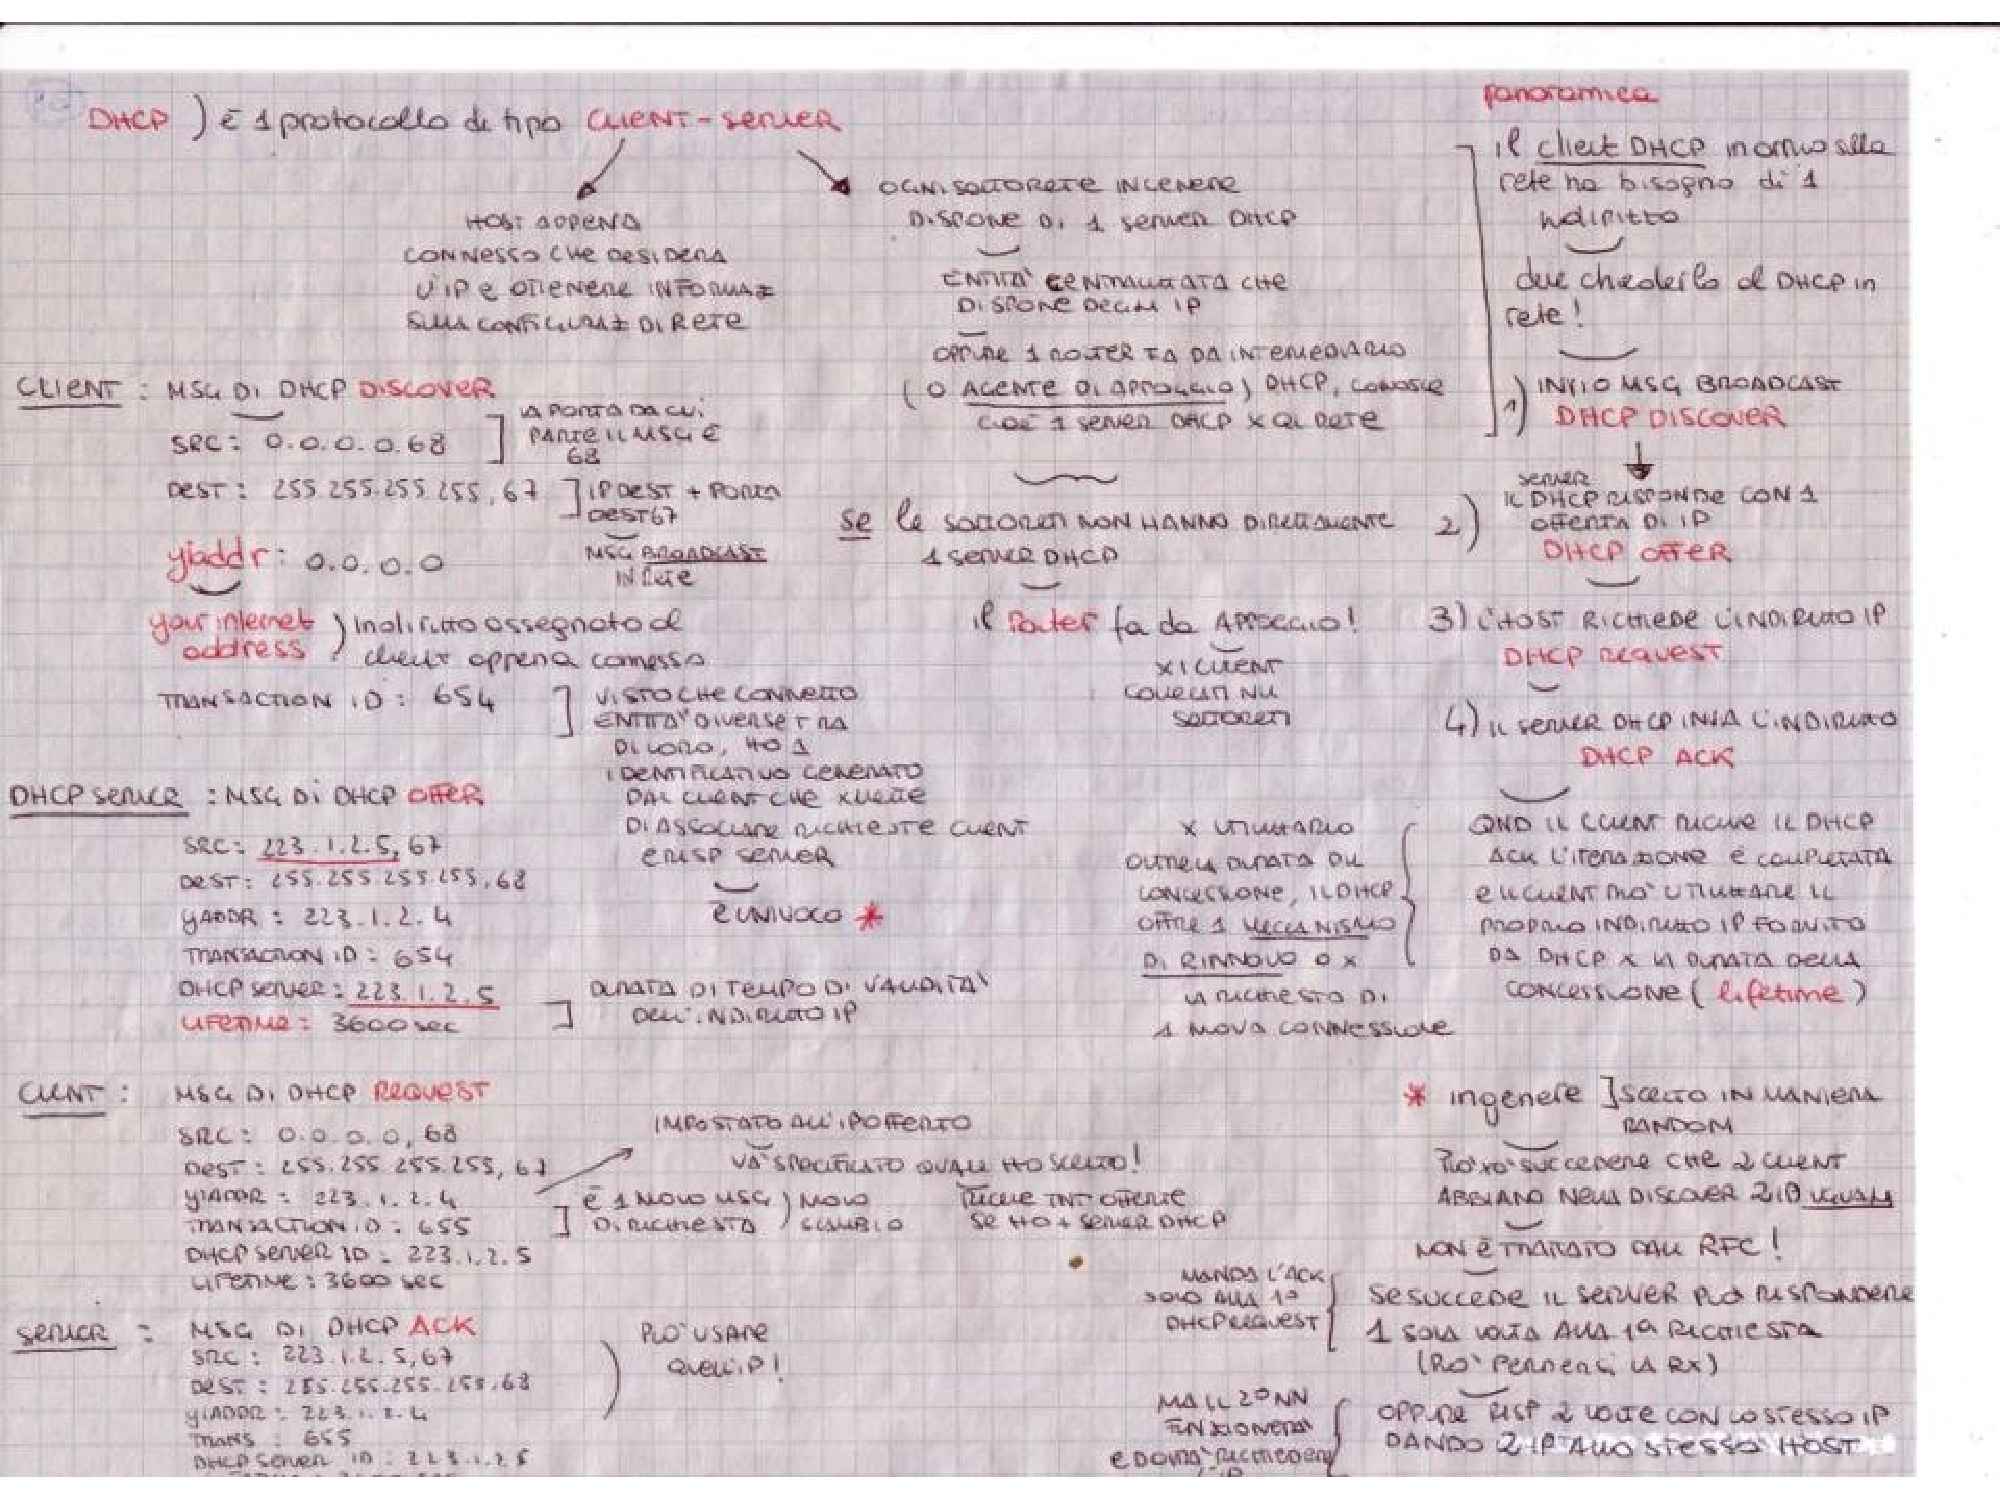 DHCP ) È 1 protocollo di tipo CLIENT-SERVER
HOST APPENA
CONNESSO CHE DESIDERA
L'IP E OTTENERE INFORMAZ
SULLA CONFIGURAZ DI RETE
OGNI SOTTORETE IN GENERE
DISPONE DI 1 SERVER DHCP
ENTITA' CENTRALIZZATA CHE
DISPONE DEGLI IP
OPPURE 1 ROUTER FA DA INTERMEDIARIO
(O AGENTE DI APPOGGIO) DHCP, CONOSCE
CIOÈ 1 SERVER DHCP X QL RETE
se le SOTTORETI NON HANNO DIRETTAMENTE
1 SERVER DHCP
il Router fa da APPOGGIO!
X I CLIENT
SOTTORETI
panoramica
il client DHCP in arrivo sulla
rete ha bisogno di 1
indirizzo
deve chiederlo al DHCP in
rete!
1) INVIO MSG BROADCAST
DHCP DISCOVER
2) SERVER
IL DHCP RISPONDE CON 1
OFFERTA DI IP
DHCP OFFER
3) L'HOST RICHIEDE L'INDIRIZZO IP
DHCP REQUEST
4) IL SERVER DHCP INVIA L'INDIRIZZO
DHCP ACK
QND IL CLIENT RICEVE IL DHCP
ACK L'ITERAZIONE È COMPLETATA
E IL CLIENT PUO' UTILIZZARE IL
PROPRIO INDIRIZZO IP FORNITO
DA DHCP X LA DURATA DELLA
CONCESSIONE (lifetime)
X UTILIZZARLO
OLTRE LA DURATA DI
CONCESSIONE, IL DHCP
OFFRE 1 MECCANISMO
DI RINNOVO O X
LA RICHIESTA DI
1 NUOVA CONNESSIONE
CLIENT : MSG DI DHCP DISCOVER
SRC: 0.0.0.0.68
LA PORTA DA CUI
PARTE IL MSG È
68
DEST: 255.255.255.255, 67
IP DEST + PORTA
DEST 67
MSG BROADCAST
IN RETE
yiaddr: 0.0.0.0
your internet
address
) Indirizzo assegnato al
client appena connesso
TRANSACTION ID: 654
VISTO CHE CONNETTO
ENTITA' DIVERSE TRA
DI LORO, HO 1
IDENTIFICATIVO GENERATO
DAL CLIENT CHE XMETTE
DI ASSOCIARE RICHIESTE CLIENT
E RISP SERVER
È UNIVOCO *
DHCP SERVER : MSG DI DHCP OFFER
SRC: 223.1.2.5, 67
DEST: 255.255.255.255, 68
YIADDR : 223.1.2.4
TRANSACTION ID: 654
DHCP SERVER: 223.1.2.5
LIFETIME: 3600 sec
DURATA DI TEMPO DI VALIDITA'
DELL'INDIRIZZO IP
CLIENT : MSG DI DHCP REQUEST
SRC: 0.0.0.0, 68
DEST: 255.255.255.255, 67
YIADDR: 223.1.2.4
TRANSACTION ID: 655
DHCP SERVER ID: 223.1.2.5
LIFETIME: 3600 sec
IMPOSTATO ALL'IP OFFERTO
VA' SPECIFICATO QUALE HO SCELTO!
È 1 NUOVO MSG
DI RICHIESTA
) NUOVO
SCAMBIO
RICEVE TNT OFFERTE
SE HO + SERVER DHCP
SERVER : MSG DI DHCP ACK
SRC: 223.1.2.5, 67
DEST: 255.255.255.255, 68
YIADDR: 223.1.2.4
TRANS: 655
DHCP SERVER ID: 223.1.2.5
PUO' USARE
QUELL'IP!
* in genere ] SCELTO IN MANIERA
RANDOM
SUCCEDERE CHE 2 CLIENT
ABBIANO NELLA DISCOVER 2 ID UGUALI
NON È TRATTATO DALL RFC!
SE SUCCEDE IL SERVER PUO RISPONDERE
1 SOLA VOLTA ALLA 1ª RICHIESTA
(PUO' PERDERSI LA RX)
MANDA L'ACK
SOLO ALLA 1ª
DHCP REQUEST
OPPURE RISP 2 VOLTE CON LO STESSO IP
DANDO 2 IP ALLO STESSO HOST
MA IL 2° NN
FUNZIONERA'
E DOVRA' RICHIEDERE